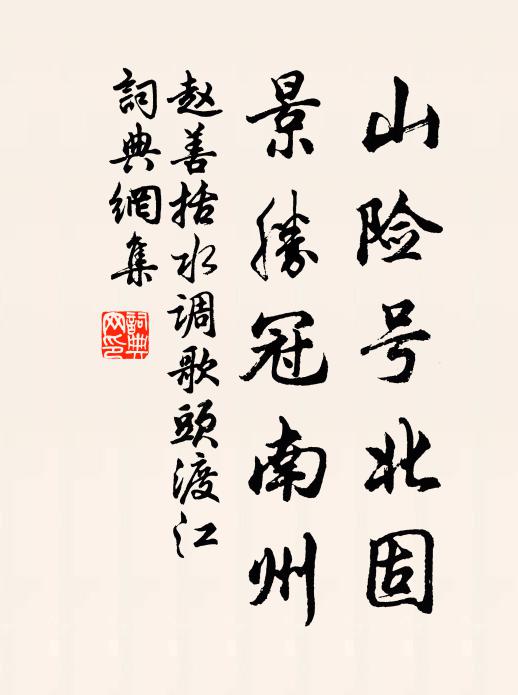 山险号北固
景勝冠南州
赵善括水调歌头渡江
詞典網集
詞典网印